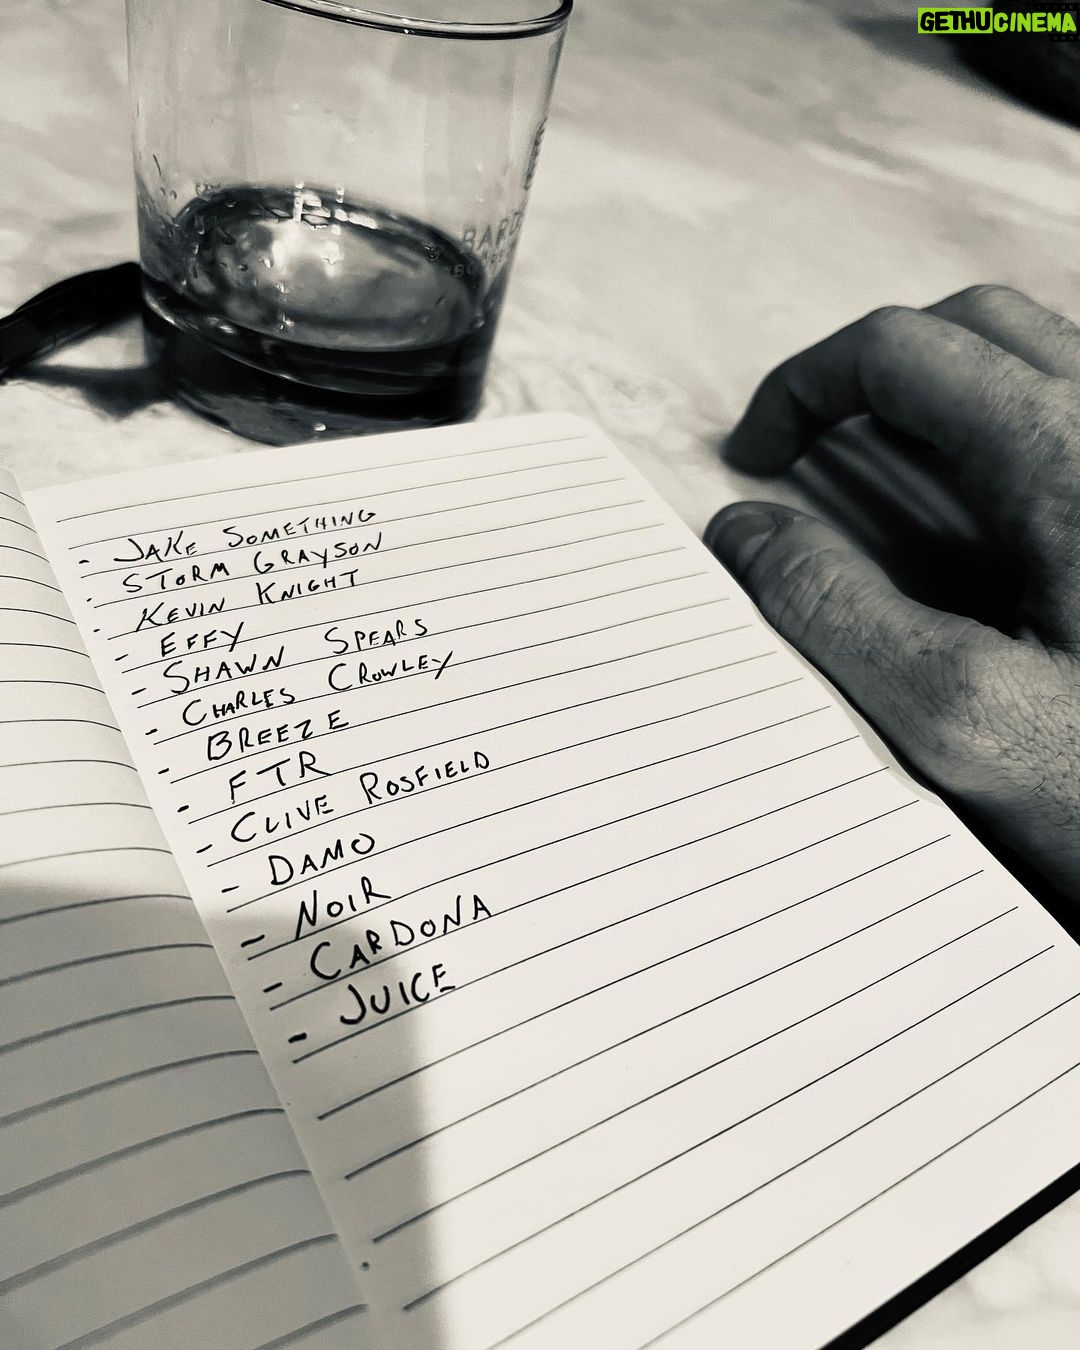 GETHUCINEMA
- JAKE SOMETHING
- STORM GRAYSON
- KEVIN KNIGHT
- EFFY
- SHAWN SPEARS
- CHARLES CROWLEY
- BREEZE
- FTR
- CLIVE ROSFIELD
- DAMO
- NOIR
- CARDONA
- JUICE